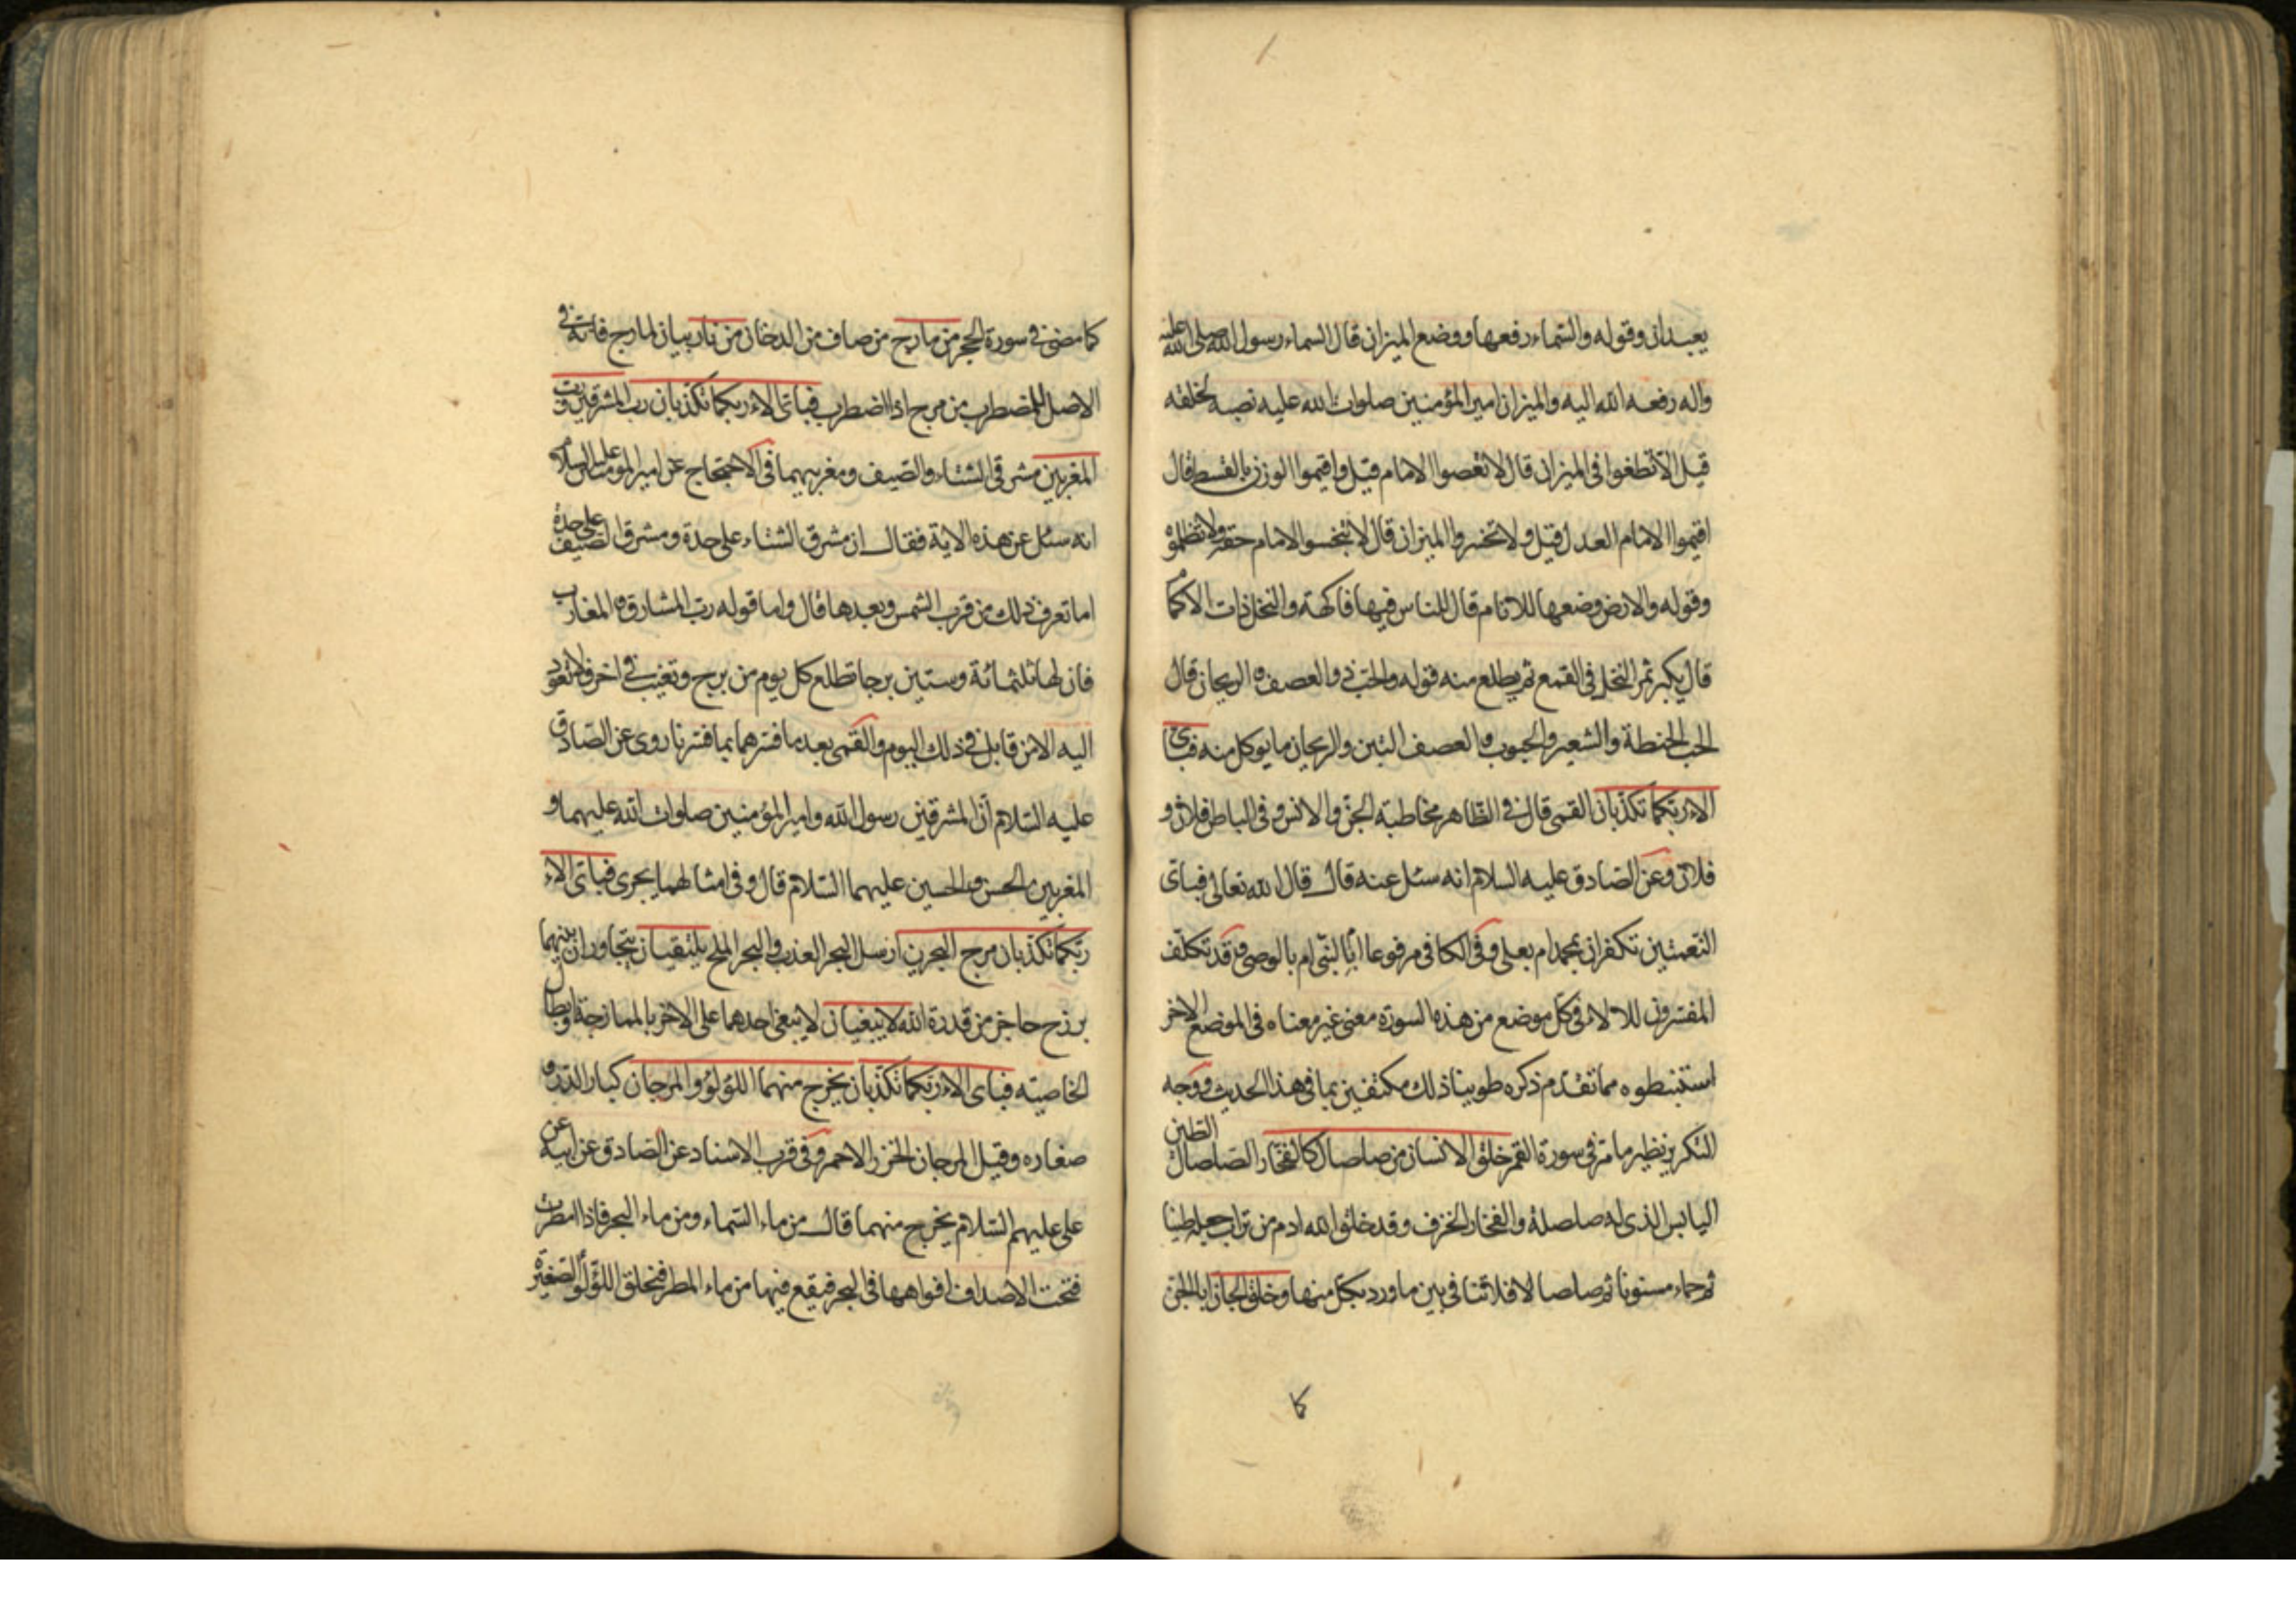 يعبدان وقوله والسّماء رفعها ووضع الميزان قال السماء رسول الله صلى الله عليه
واله رفعه الله اليه والميزان امير المؤمنين صلوات الله عليه نصبه لخلقه
قيل الّا تطغوا فى الميزان قال لا تعصوا الامام قيل واقيموا الوزن بالقسط قال
اقيموا الامام العدل قيل ولا تخسروا الميزان قال لا تبخسوا الامام حقه ولا تظلموه
وقوله والارض وضعها للانام قال للناس فيها فاكهة والنخل ذات الاكمام
قال يكبر ثمر النخل فى القمع ثم يطلع منه قوله والحبّ ذو العصف و الريحان قال
الحب الحنطة والشعير والحبوب و العصف التبن والريحان ما يوكل منه فباىّ
الاء ربّكما تكذّبان القمى قال فى الظّاهر مخاطبة الجنّ والانس وفى الباطن فلان و
فلان وعن الصّادق عليه السلام انه سئل عنه قال قال الله تعالى فباىّ
النّعمتين تكفران بمحمد ام بعلى وفى الكافى مرفوعا ابالنّبى ام بالوصى وقد تكلّف
المفسّرون للالاء فى كلّ موضع من هذه السورة معنى غير معناه فى الموضع الاخر
استنبطوه مما تقدّم ذكره طوينا ذلك مكتفين بما فى هذا الحديث ووجه
التكرير نظير ما مرّ فى سورة القمر خلق الانسان من صلصال كالفخّار الصّلصال الطين
اليابس الذى له صلصلة والفخار الخزف وقد خلق الله ادم من تراب جعله طينا
ثم حماء مسنونا ثم صلصالا فلا تنافى بين ما ورد بكل منها وخلق الجانّ ابا الجنّ
كما
كما مضى فى سورة الحجر من مارج من صاف من الدخان من نار بيان لمارج فانه فى
الاصل للمضطرب من مرج اذا اضطرب فباىّ الاء ربكما تكذّبان ربّ المشرقين وربّ
المغربين مشرقى الشتاء والصّيف ومغربيهما فى الاحتجاج عن امير المؤمنين عليه السلام
انه سئل عن هذه الاية فقال ان مشرق الشتاء على حدة ومشرق الصّيف على حدة
اما تعرف ذلك من قرب الشمس وبعدها قال واما قوله ربّ المشارق و المغارب
فان لها ثلثمائة وستين برجا تطلع كل يوم من برج وتغيب فى اخر فلا تعود
اليه الا من قابل فى ذلك اليوم والقمى بعد ما فسّرهما بما فسّرنا روى عن الصّادق
عليه السّلام انّ المشرقين رسول الله وامير المؤمنين صلوات الله عليهما و
المغربين الحسن والحسين عليهما السّلام قال وفى امثالهما يجرى فباىّ الاء
ربّكما تكذّبان مرج البحرين ارسل البحر العذب والبحر الملح يلتقيان يتجاوران بينهما
برزخ حاجز من قدرة الله لا يبغيان لا يبغى احدهما على الاخر بالممازجة وابطال
الخاصيّة فباى الاء ربّكما تكذّبان يخرج منهما اللؤلؤ والمرجان كبار الدّرّ و
صغاره وقيل المرجان الخرز الاحمر وفى قرب الاسناد عن الصّادق عن ابيه عن
على عليهم السّلام يخرج منهما قال من ماء السّماء ومن ماء البحر فاذا امطرت
فتحت الاصداف افواهها فى البحر فيقع فيها من ماء المطر فتخلق اللؤلؤ الصّغيرة